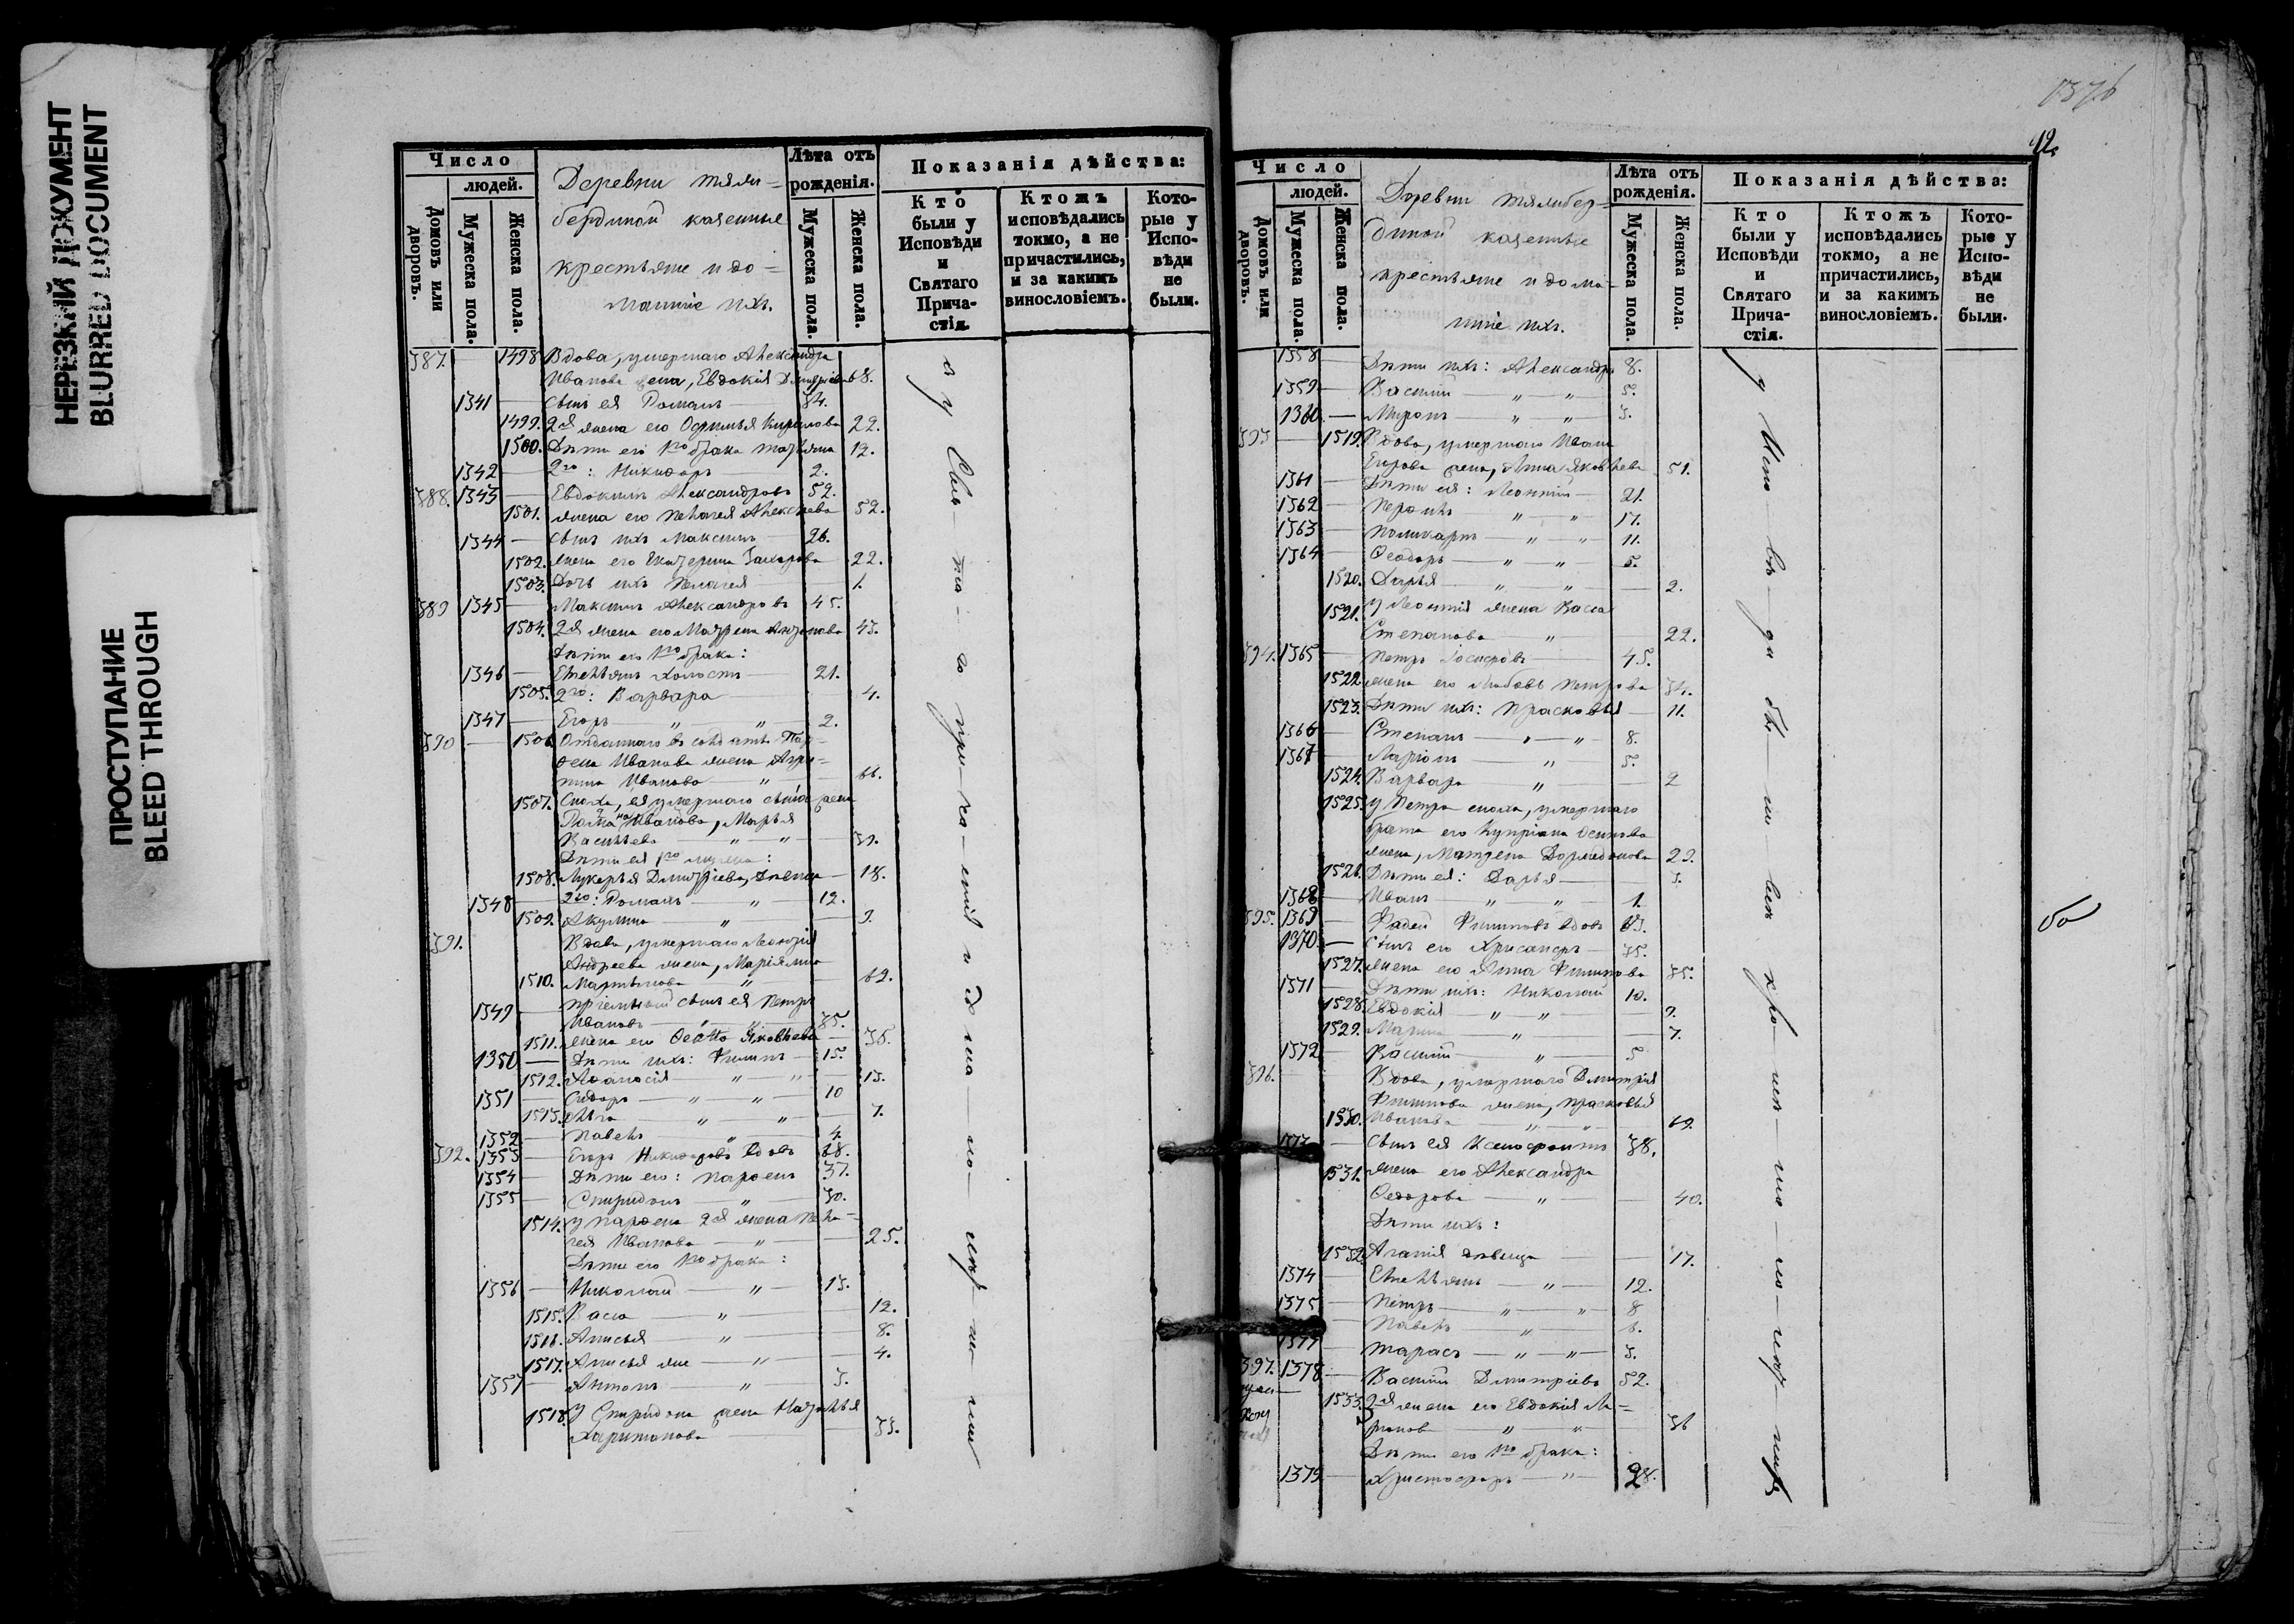 НЕРЕЗКИЙ ДОКУМЕНТ
BLURRED DOCUMENT
ПРОСТУПАНИЕ
BLEED THROUGH
Число
людей.
Домовъ или дворовъ.
Мужеска пола.
Женска пола.
Деревни Тяли-
бердиной казенные
крестьяне и до-
машніе ихъ.
Лѣта отъ рожденія.
Мужеска пола.
Женска пола.
Показанія дѣйства:
Кто были у Исповѣди и Святаго Прича-стія.
Ктожъ исповѣдались токмо, а не причастились, и за какимъ винословіемъ.
Кото-рые у Испо-вѣди не были.
387. 1498 Вдова, умершаго Александра
Иванова жена, Евдокія Дмитріева 68.
1341 — Сынъ ея Романъ — 34.
1499. 2я жена его Кирилова 22.
1500. Дѣти его 1го брака Татьяна 12.
1342 — 2го: Никифоръ — 2.
388. 1343 — Евдокимъ Александровъ 52.
1501. жена его Пелагея Алексѣева 52.
1344 — Сынъ ихъ Максимъ — 26.
1502. жена его Екатерина Захарова 22.
1503. Дочь ихъ Пелагея — 1.
389 1345 — Максимъ Александровъ 45.
1504. 2я жена его Матрена Антонова 43.
Дѣти его 1го брака:
1346 — Емельянъ холостъ — 21.
1505. 2го: Варвара — 4.
1347 — Егоръ — „ — „ — 2.
390 — 1506 Отданнаго въ солдаты Пар-
фена Иванова жена Агри-
пина Иванова — „ — 66.
1507. Сноха, ея умершаго сына жена
Романа Иванова, Марья
Васильева — „ — „ — 39.
Дѣти ея 1го мужа:
1508. Лукерья Дмитріева, дѣвица — 18.
1348 — 2го: Романъ — „ — 12.
1509. Акулина „ — 9.
391. Вдова, умершаго Леонтія
Андреева жена, Маріямна
1510. Мартынова — „ — 62.
1349 — пріемный сынъ ея Петръ
Ивановъ — „ — „ — 35.
1511. жена его Яковлева — 36.
1350 — Дѣти ихъ: Филипъ — 15.
1512. Афанасія — „ — „ — 13.
1351 — Сидоръ — „ — „ — 10
1513. „ „ — 7.
1352 — Павелъ — „ — 4.
392. 1353 — Егоръ Никифоровъ вдовъ 68.
1354 — Дѣти его: Парфенъ 37.
1355 — Спиридонъ „ — 30.
1514. у Парфена 2я жена Пела-
гея Иванова — „ — 25.
Дѣти его 1го брака:
1356 — Николай — „ — 13.
1515. Васса — „ — 12.
1516. Анисья — „ — 8.
1517. Анисья же — „ — 4.
1357 — Антонъ „ — 3.
1518. У Спиридона жена Наталья
Харитонова — 33.
1376
42.
Число
людей.
Домовъ или дворовъ.
Мужеска пола.
Женска пола.
Деревни Тялибер-
диной казенные
крестьяне и дома-
шніе ихъ.
Лѣта отъ рожденія.
Мужеска пола.
Женска пола.
Показанія дѣйства:
Кто были у Исповѣди и Святаго Прича-стія.
Ктожъ исповѣдались токмо, а не причастились, и за какимъ винословіемъ.
Кото-рые у Испо-вѣди не были.
1358 — Дѣти ихъ: Александръ 8.
1359 — Василій — „ — „ — 5.
1360. — Миронъ — „ — „ 3.
393 — 1519. Вдова, умершаго Ивана
Егорова жена, Анна Яковлева 51.
1361 — Дѣти ея: Леонтій — 21.
1362 — „ — „ — 17.
1363 — Поликарпъ — „ — „ 11.
1364 — Феодоръ — „ — „ 5.
1520. Дарья — „ — „ — 2.
1521. у Леонтія жена Васса
Степанова — „ — 22.
394. 1365 — Петръ Іосифовъ — 45.
1522. жена его Любовь Петрова 34.
1523. Дѣти ихъ: Прасковья — 11.
1366 — Степанъ — „ — „ 8.
1367 — Ларіонъ — „ 5.
1524. Варвара „ — 2
1525. у Петра сноха, умершаго
брата его Купріана Осипова
жена, Матрена Дормедонова 29.
1526. Дѣти ея: Дарья — 3.
1368 — Иванъ — „ — „ — 1.
395. 1369 — Фадей Филиповъ вдовъ 63.
1370. — Сынъ его Хрисанфъ — 35.
1527. жена его Анна Филипова 35.
1371 — Дѣти ихъ: Николай 10.
1528. Евдокія — „ — „ — 9.
1529. Марина „ — 7.
1372 — Василій — „ — 5
396. Вдова, умершаго Дмитрія
Филипова жена, Прасковья
1530. Иванова — „ — „ — 69.
1373 — Сынъ ея Ксенофонтъ 38.
1531. жена его Александра
Федорова — „ — 40.
Дѣти ихъ:
1532. Агафія дѣвица — 17.
1374 — Емельянъ — „ — 12.
1375 — Петръ — „ — „ 8
Павелъ — „ — 6.
1377 — Тарасъ — „ — „ 3.
397. 1378 — Василій Дмитріевъ 52.
1533. 2я жена его Евдокія Ла-
ріонова „ — „ 36
Дѣти его 1го брака:
1379 — Христофоръ — „ — 28.